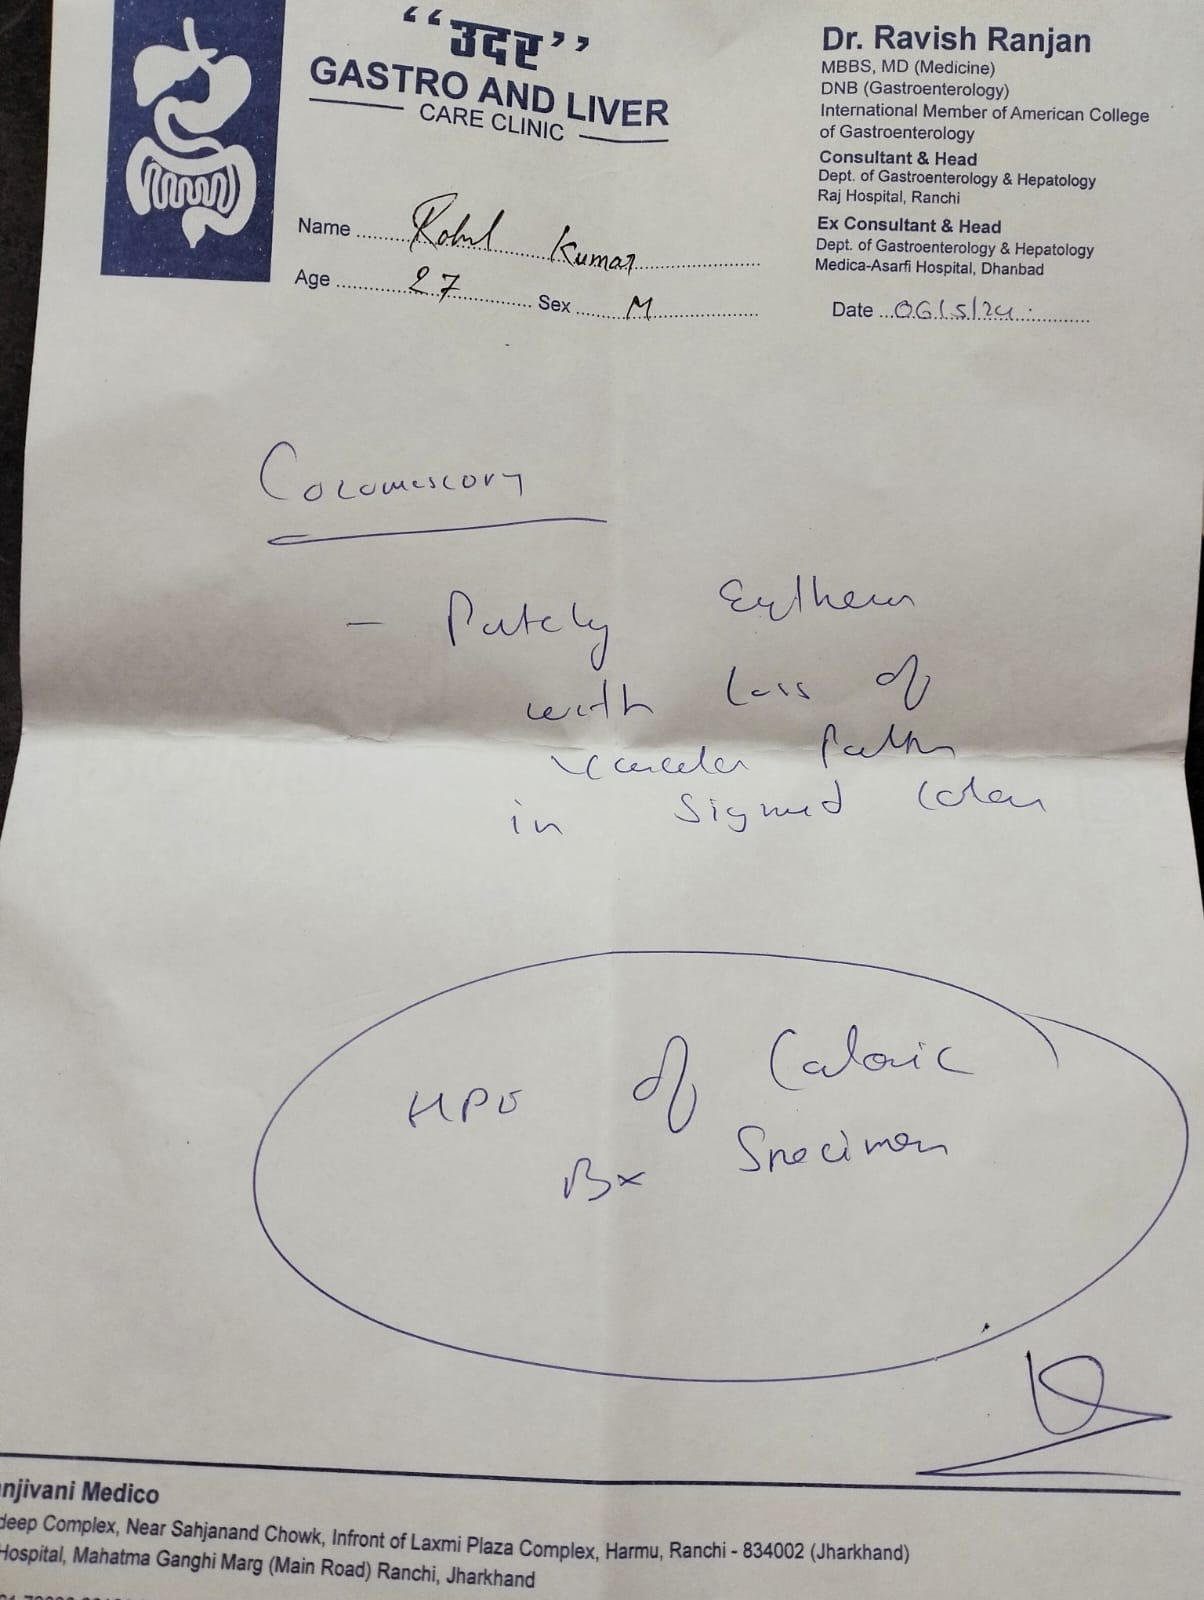 “उदर”
GASTRO AND LIVER
CARE CLINIC
Dr. Ravish Ranjan
MBBS, MD (Medicine)
DNB (Gastroenterology)
International Member of American College
of Gastroenterology
Consultant & Head
Dept. of Gastroenterology & Hepatology
Raj Hospital, Ranchi
Ex Consultant & Head
Dept. of Gastroenterology & Hepatology
Medica-Asarfi Hospital, Dhanbad
Name Kumar
Age 27 Sex M
Date 06/5/24
- Patchy
with loss of
in Sigmoid Colon
HPE of Colonic
Bx Specimen
njivani Medico
deep Complex, Near Sahjanand Chowk, Infront of Laxmi Plaza Complex, Harmu, Ranchi - 834002 (Jharkhand)
Hospital, Mahatma Ganghi Marg (Main Road) Ranchi, Jharkhand